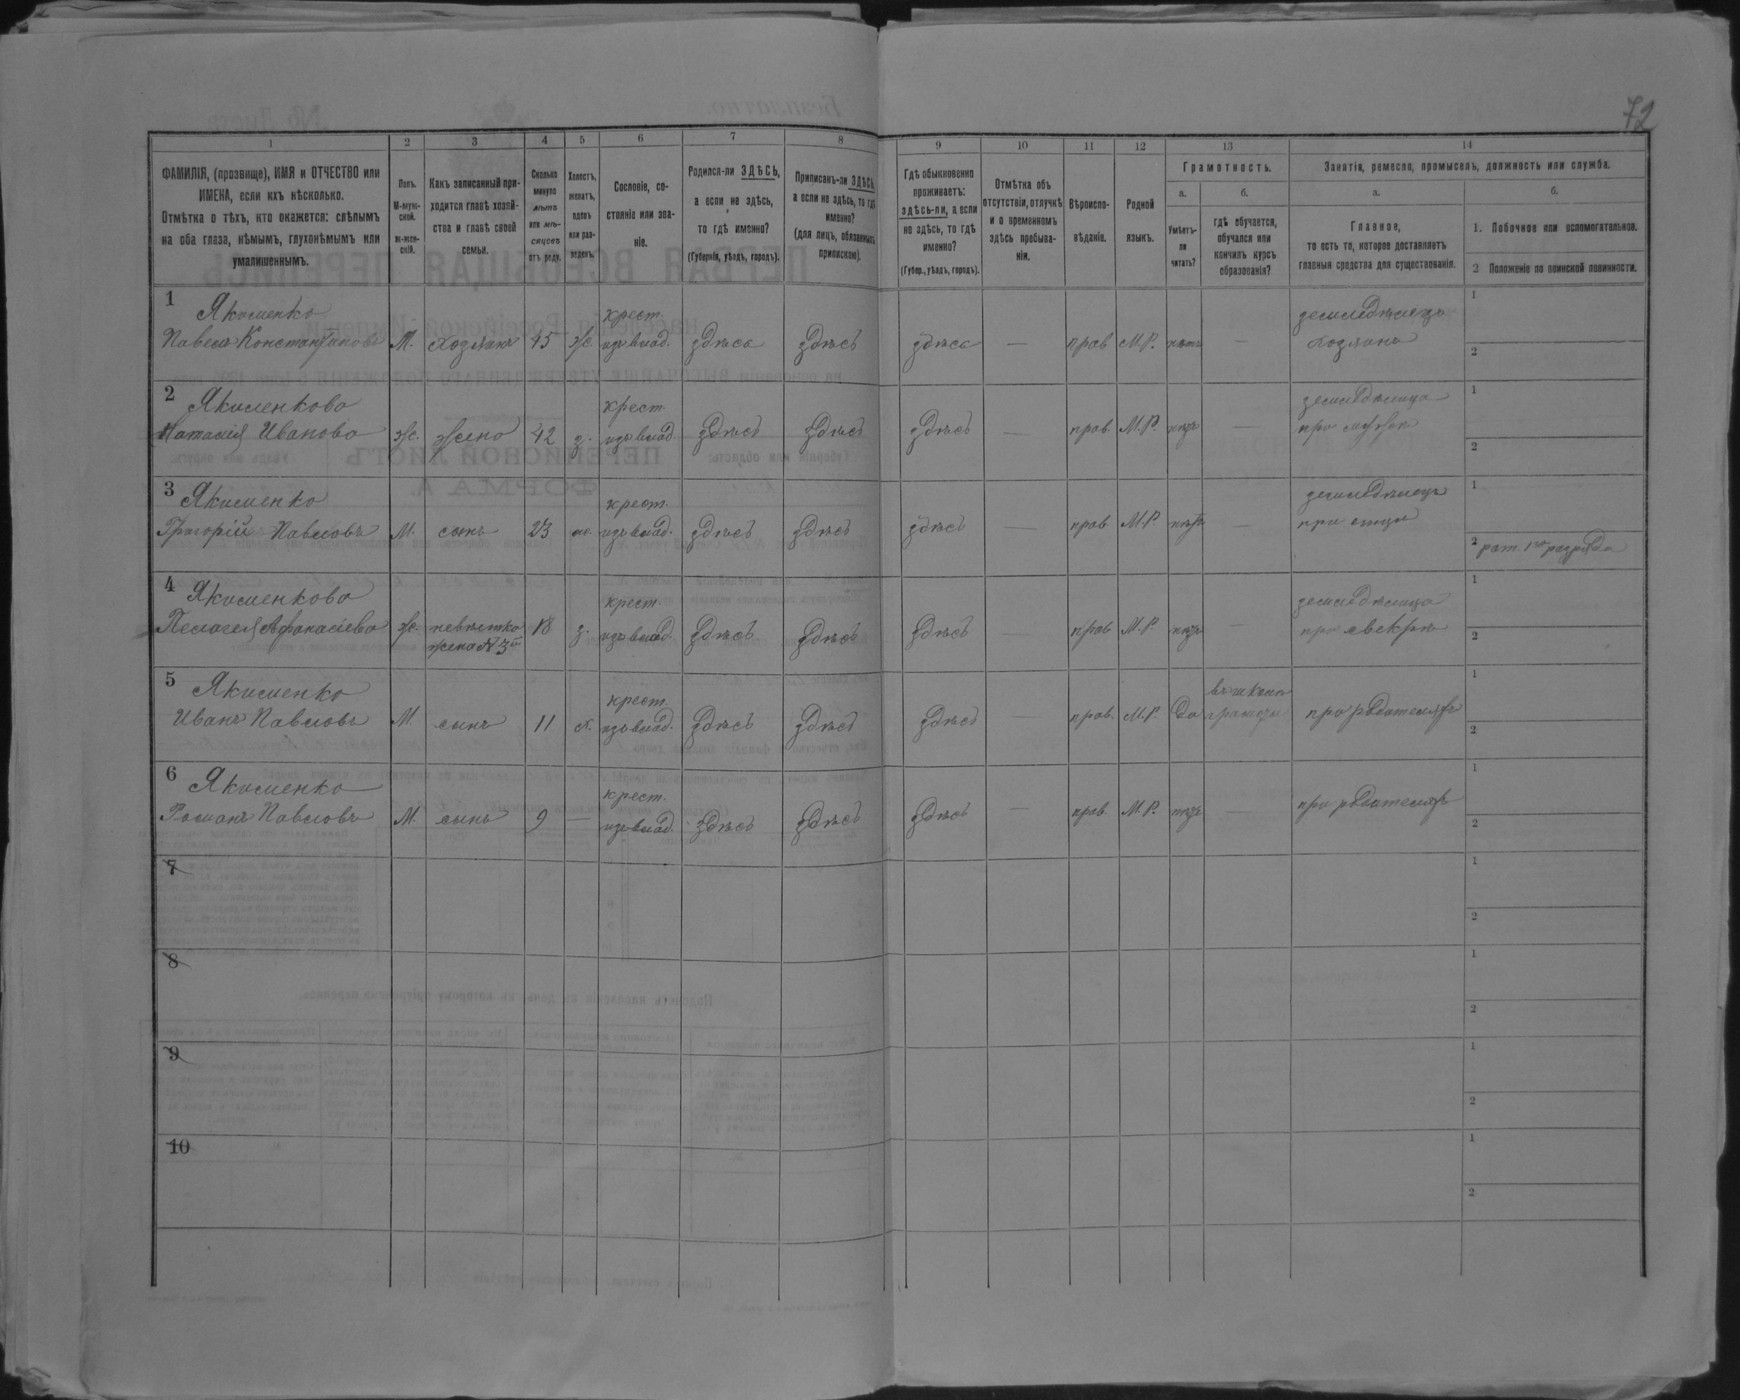 72
1 2 3 4 5 6 7 8 9 10 11 12 13 14
ФАМИЛІЯ, (прозвище), ИМЯ и ОТЧЕСТВО или ИМЕНА, если ихъ нѣсколько.
Отмѣтка о тѣхъ, кто окажется: слѣпымъ на оба глаза, нѣмымъ, глухонѣмымъ или умалишеннымъ.
Полъ.
М-мужской.
ж-женскій.
Какъ записанный приходится главѣ хозяйства и главѣ своей семьи.
Сколько минуло лѣтъ или мѣсяцевъ отъ роду.
Холостъ, женатъ, вдовъ или разведенъ.
Сословіе, состояніе или званіе.
Родился-ли ЗДѢСЬ, а если не здѣсь, то гдѣ именно?
(Губернія, уѣздъ, городъ).
Приписанъ-ли ЗДѢСЬ, а если не здѣсь, то гдѣ именно?
(для лицъ, обязанныхъ припискою).
Гдѣ обыкновенно проживаетъ: здѣсь-ли, а если не здѣсь, то гдѣ именно?
(Губер., уѣздъ, городъ).
Отмѣтка объ отсутствіи, отлучкѣ и о временномъ здѣсь пребываніи.
Вѣроисповѣданіе.
Родной языкъ.
Грамотность.
а.
Умѣетъ-ли читать?
б.
гдѣ обучается, обучался или кончилъ курсъ образованія?
Занятія, ремесло, промыселъ, должность или служба.
а.
Главное,
то есть то, которое доставляетъ главныя средства для существованія.
б.
1. Побочное или вспомогательное.
2 Положеніе по воинской повинности.
1 Якименко крест. земледѣлецъ 1
Павелъ Константиновъ М. хозяинъ 45 ж. изъ влад. здѣсь здѣсь здѣсь — прав М.Р. нѣтъ — хозяинъ 2
2 Якименкова крест. земледѣлица 1
Наталія Иванова ж. жена 42 з. изъ влад здѣсь здѣсь здѣсь — прав. М.Р. нѣтъ — при мужѣ 2
3 Якименко крест. земледѣлецъ 1
Григорій Павловъ М. сынъ 23 же изъ влад. здѣсь здѣсь здѣсь — прав М.Р. нѣтъ — при отцѣ 2 рат. 1го разряда
4 Якименкова крест. земледѣлица 1
Пелагея Афанасіева ж. невѣстка 18 з. изъ влад. здѣсь здѣсь здѣсь — прав М.Р. нѣтъ — при свекрѣ 2
жена № 3го
5 Якименко крест. въ школѣ 1
Иванъ Павловъ М. сынъ 11 х. изъ влад. здѣсь здѣсь здѣсь — прав. М.Р. да грамоты при родителяхъ 2
6 Якименко крест. 1
Романъ Павловъ М. сынъ 9 — изъ влад. здѣсь здѣсь здѣсь — прав. М.Р. нѣтъ — при родителяхъ 2
7 1
2
8 1
2
9 1
2
10 1
2